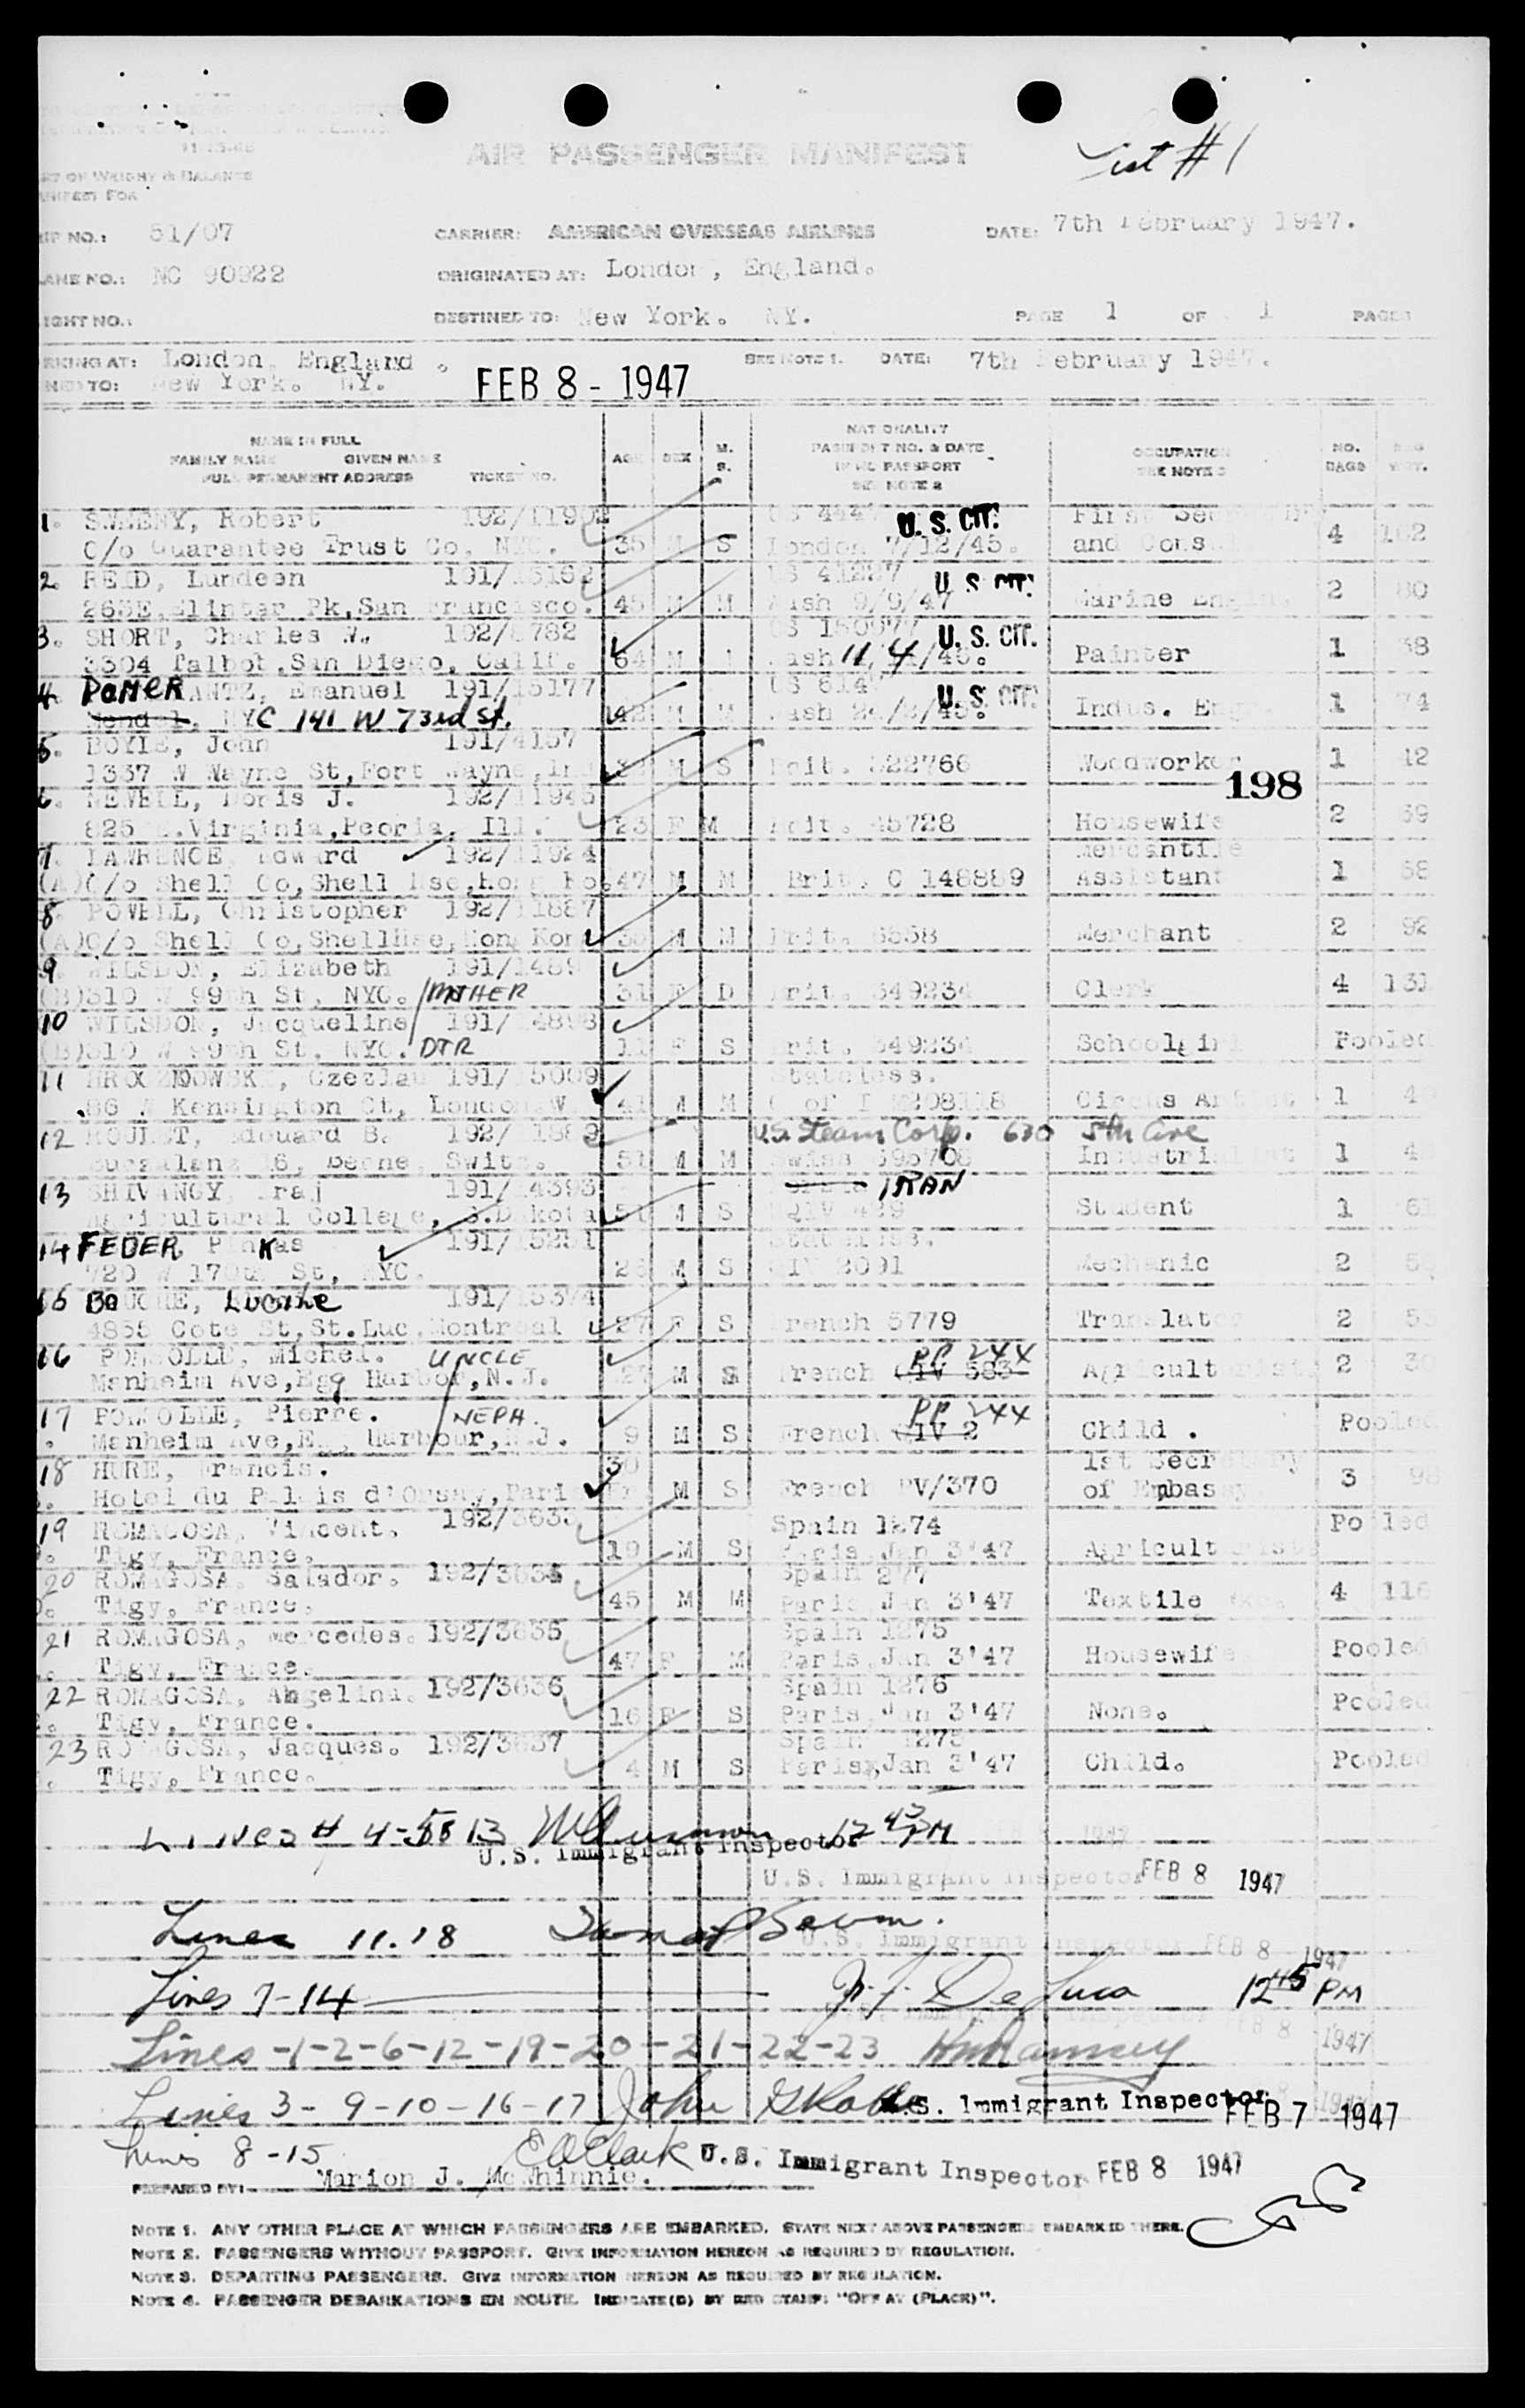 List #1
11-15-46
AIR PASSENGER MANIFEST
RT OF WEIGHT & BALANCE
MANIFEST FOR
IP NO.: 51/07 CARRIER: AMERICAN OVERSEAS AIRLINES DATE: 7th February 1947.
LANE NO.: NC 90922 ORIGINATED AT: London, England.
IGHT NO.: DESTINED TO: New York. NY. PAGE 1 OF 1 PAGES
RKING AT: London, England. SEE NOTE 1. DATE: 7th February 1947.
NED TO: New York. NY.
FEB 8 - 1947
NAME IN FULL
FAMILY NAME GIVEN NAME
FULL PERMANENT ADDRESS TICKET NO. AGE SEX M. S. NATIONALITY PASSPORT NO. & DATE IF NO PASSPORT SEE NOTE 2 OCCUPATION SEE NOTE 3 NO. BAGS WGT.
1. SWEENY, Robert 192/11902 US U. S. CIT. First
C/o Guarantee Trust Co, NYC. 35 M S London 7/12/45. and Cons 4 162
2. REID, Lundeen 191/15162 US U. S. CIT.
265E, Flinter Pk, San Francisco. 45 M M Wash 9/9/47 Marine 2 80
3. SHORT, Charles W. 192/8782 US U. S. CIT.
3304 Talbot, San Diego, Calif. 64 M Wash 11/4/46. Painter 1 38
4. POMERANTZ, Emanuel 191/15177 US U. S. CIT.
NYC 141 W 73rd St. 42 M M Wash Indus. Engr. 1 74
5. BOYLE, John 191/4157
1337 W Wayne St, Fort Wayne, Ind M S Brit. 522766 Woodworker 1 42
198
6. NEWELL, Doris J. 192/11945
825 Virginia, Peoria, Ill. 23 F M Brit. 45728 Housewife 2 59
7. LAWRENCE, Edward 192/11924 Mercantile
(A)C/o Shell Co, Shell Hse, Hong Ko. 47 M M Brit. C 148889 Assistant 1 58
8. POWELL, Christopher 192/11887
(A)C/o Shell Co, ShellHse, Hong Kong M M Brit. 6558 Merchant 2 92
9 WILSDON, Elizabeth
(B)310 W 99th St, NYC. MOTHER 31 F D Brit. 549234 Clerk 4 131
10 WILSDON, Jacqueline 191/14898
(B)310 W 99th St, NYC. DTR 11 F S Brit. 549234 Schoolgirl Pooled
11 Czeslau 191/15009 Stateless.
86 W Kensington Ct, London W 41 M M C of I Circus Artist 1
12 Edouard B. 192/ U.S. Steam Corp. 630 5th Ave
16, Berne, Switz. 51 M M Swiss 595708 Industrialist 1
13 SHIVANGY, Iraj 191/14393 IRAN
Agricultural College, S.Dakota M S QIV 439 Student 1 61
14 FEDER, Pinkas 191/15251 Stateless.
720 W 170th St, NYC. M S QIV 2091 Mechanic 2
15 BOUCHE, Lucille 191/15374
4855 Cote St, St.Luc, Montreal 27 F S French 5779 Translator 2
16 POMMOLLE, Michel. UNCLE PP 244
Manheim Ave, Egg Harbor, N.J. M S French QIV 583 Agriculturist 2
17 POMMOLLE, Pierre. NEPH. PP 244
Manheim Ave, Egg Harbour, N.J. 9 M S French QIV 2 Child . Pooled
18 HURE, Francis. 30 1st Secretary
Hotel du Palais d'Orsay, Pari M S French PV/370 of Embassy 3 98
19 ROMAGOSA, Vincent. 192/3633 Spain 1274 Pooled
Tigy, France. 19 M S Paris, Jan 3'47 Agriculturist
20 ROMAGOSA, Salador. 192/3634 Spain 277
Tigy, France. 45 M M Paris, Jan 3'47 Textile 4 116
21 ROMAGOSA, Mercedes. 192/3635 Spain 1275
Tigy, France. 47 F M Paris, Jan 3'47 Housewife Pooled
22 ROMAGOSA, Angelina. 192/3636 Spain 1276
Tigy, France. 16 F S Paris, Jan 3'47 None. Pooled
23 ROMAGOSA, Jacques. 192/3637 Spain 1275
Tigy, France. 4 M S Paris, Jan 3'47 Child. Pooled
LINES # 4-5 & 13 12 45 PM
U.S. Immigrant Inspector
U.S. Immigrant Inspector FEB 8 1947
Lines 11.18
U.S. Immigrant Inspector FEB 8 1947
Lines 7-14 J. J. De Luca 12 45 PM
FEB 8 1947
Lines -1-2-6-12-19-20-21-22-23 HM Ramsey
Lines 3-9-10-16-17 John U.S. Immigrant Inspector FEB 7 1947
Lines 8-15 Clark U.S. Immigrant Inspector FEB 8 1947
PREPARED BY: Marion J. McWhinnie.
NOTE 1. ANY OTHER PLACE AT WHICH PASSENGERS ARE EMBARKED. STATE NEXT ABOVE PASSENGERS EMBARKED THERE.
NOTE 2. PASSENGERS WITHOUT PASSPORT. GIVE INFORMATION HEREON AS REQUIRED BY REGULATION.
NOTE 3. DEPARTING PASSENGERS. GIVE INFORMATION HEREON AS REQUIRED BY REGULATION.
NOTE 4. PASSENGER DEBARKATIONS EN ROUTE. INDICATE(D) BY RED STAMP: "OFF AT (PLACE)".